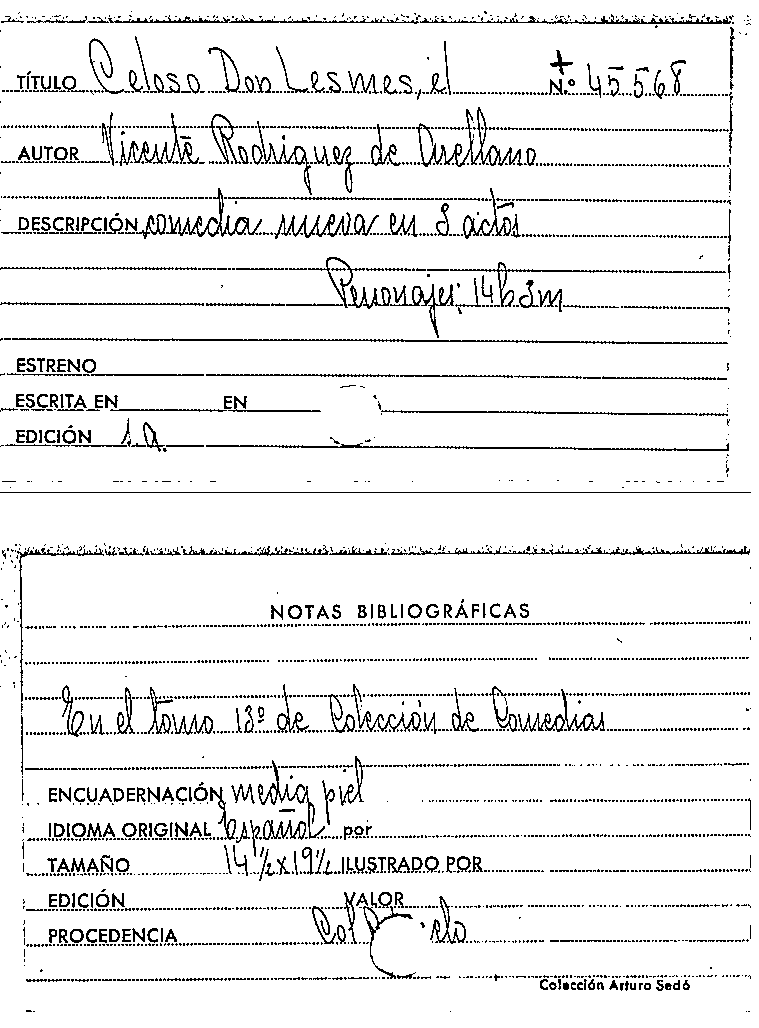 TÍTULO Celoso Don Lesmes, el + N.º 45568
AUTOR Vicente Rodriguez de Arellano
DESCRIPCIÓN comedia nueva en 3 actos
Personajes: 14h 3m
ESTRENO
ESCRITA EN EN
EDICIÓN s.a.
NOTAS BIBLIOGRÁFICAS
En el tomo 13º de Colección de Comedias
ENCUADERNACIÓN media piel
IDIOMA ORIGINAL español por
TAMAÑO 14 1/2 x 19 1/2 ILUSTRADO POR
EDICIÓN VALOR
PROCEDENCIA Col
Colección Arturo Sedó